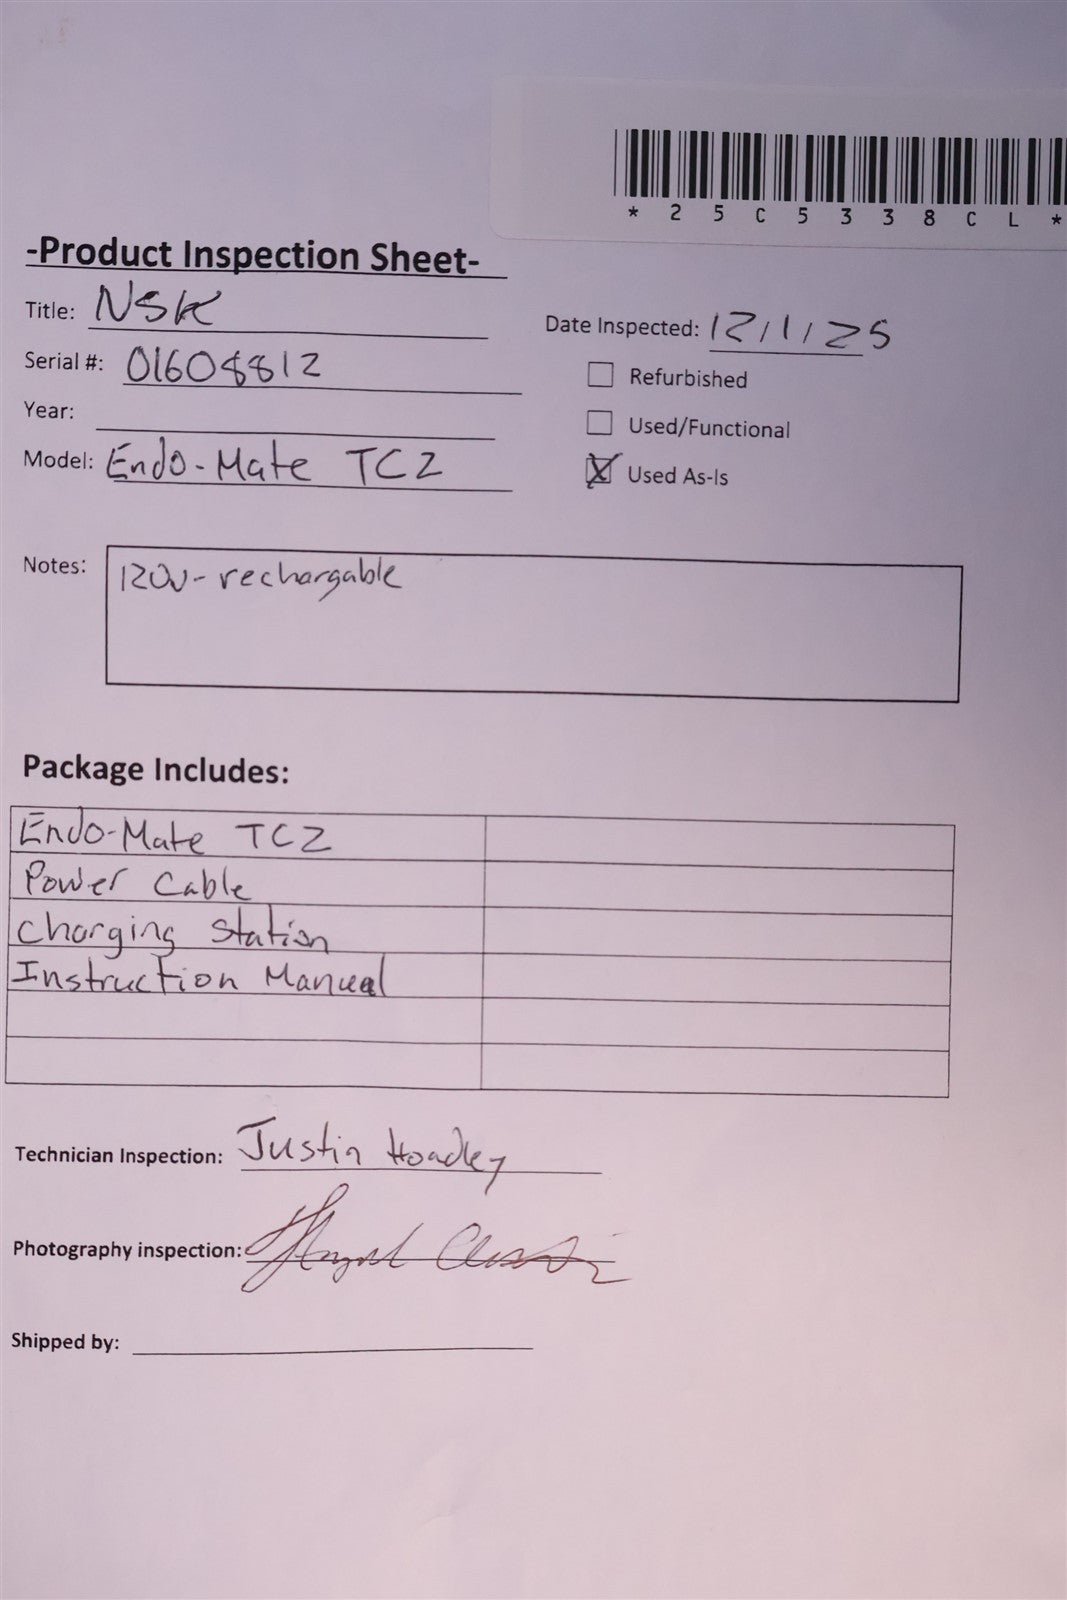 *25C5338CL*
-Product Inspection Sheet-
Title: NSK
Date Inspected: 12/1/25
Serial #: 01608812
Refurbished
Year:
Used/Functional
Model: Endo-Mate TC2
Used As-Is
Notes: 120v- rechargable
Package Includes:
Endo-Mate TC2
Power Cable
Charging Station
Instruction Manual
Technician Inspection: Justin Hoadley
Photography inspection:
Shipped by: